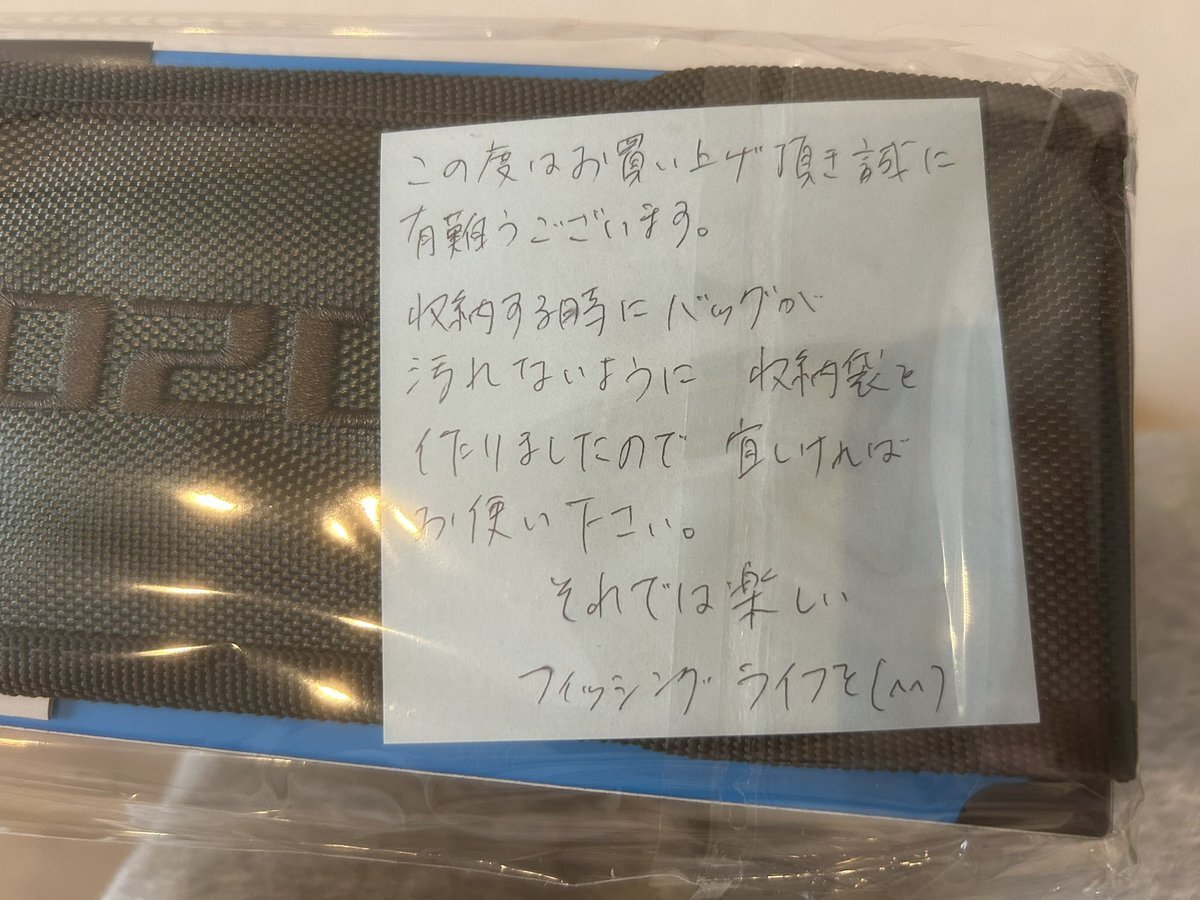 この度はお買い上げ頂き誠に
有難うございます。
収納する時にバッグが
汚れないように 収納袋を
作りましたので 宜しければ
お使い下さい。
それでは楽しい
フィッシングライフを(^^)